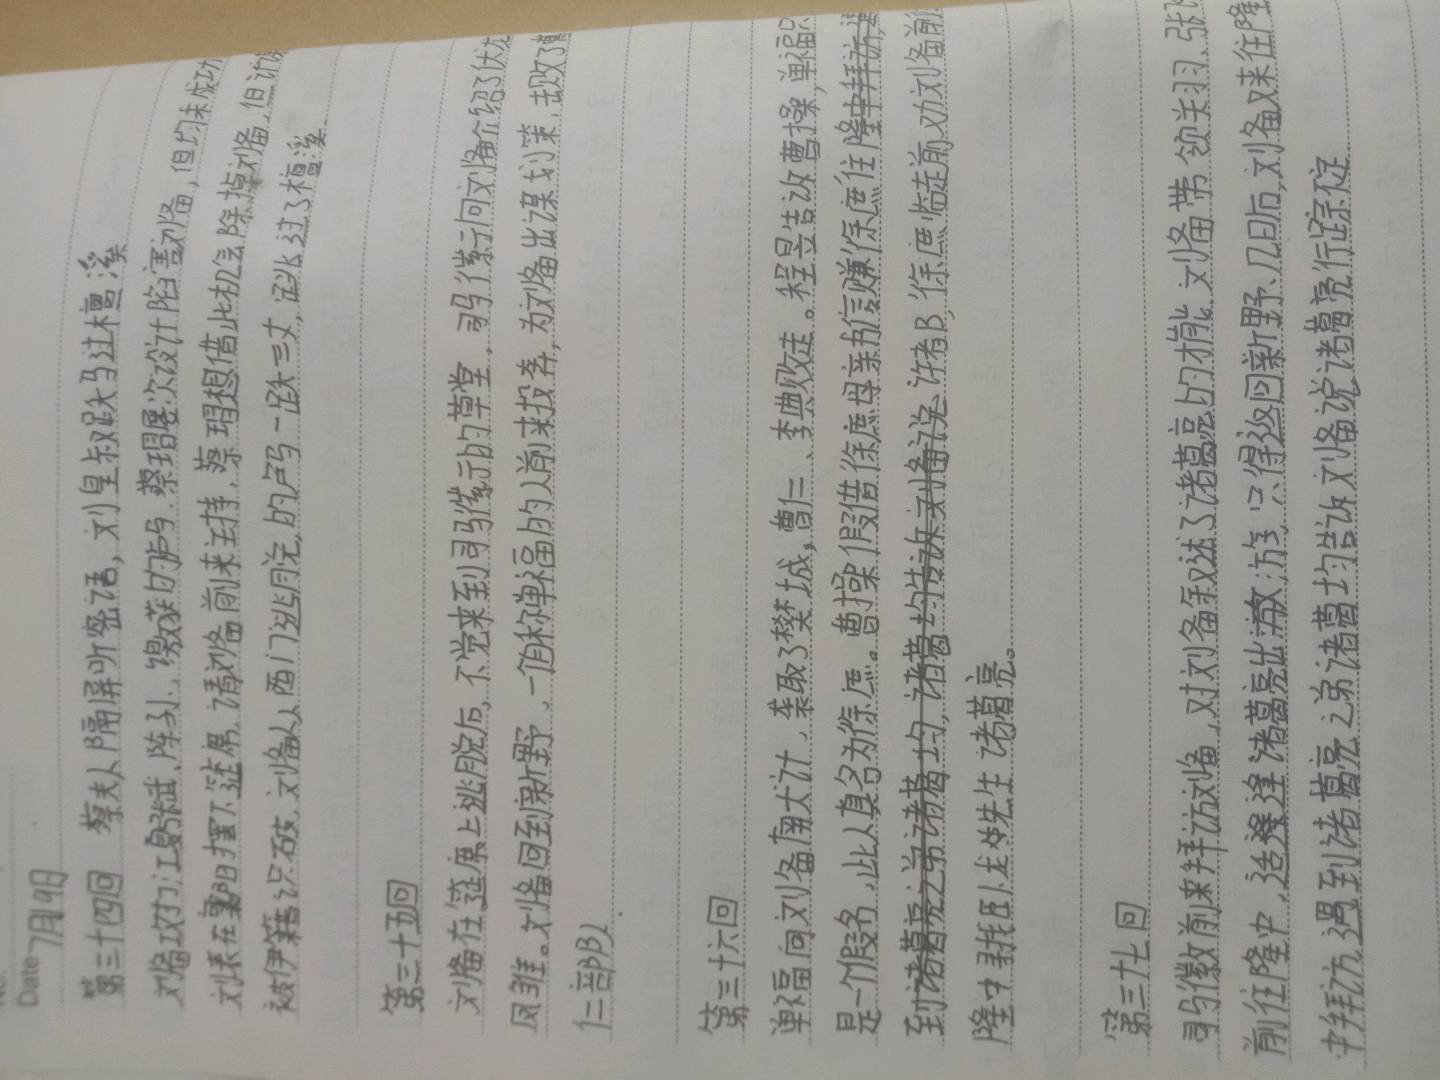 Date 7月19日
第三十四回 蔡夫人隔屏听密语，刘皇叔跃马过檀溪
刘备攻打江夏张武、陈孙，缴获的卢马，蔡瑁屡次设计陷害刘备，但均未成功
刘表在襄阳摆下筵席，请刘备前来主持，蔡瑁想借此机会除掉刘备，但
被伊籍识破，刘备从西门逃脱，的卢马一跃三丈，跃过了檀溪
第三十五回
刘备在筵席上逃脱后，不觉来到司马徽的草堂，司马徽向刘备介绍了伏龙
凤雏。刘备回到新野，一自称单福的人前来投奔，为刘备出谋划策，击败了曹
仁部队
第三十六回
单福向刘备献计，袭取了樊城，曹仁、李典败走。程昱告诉曹操，单福只
是一个假名，此人真名为徐庶。曹操假借徐庶母亲书信赚徐庶往隆中拜访，遇
到诸葛亮之弟诸葛均，诸葛均告诉刘备说 许都，徐庶临走前劝刘备前
隆中拜卧龙先生诸葛亮。
第三十七回
司马徽前来拜访刘备，对刘备叙述了诸葛亮的才能，刘备带领关羽、张飞
前往隆中，适逢诸葛亮出游，只得返回新野、几日后，刘备又来往隆
中拜访，遇到诸葛亮之弟诸葛均告诉刘备说诸葛亮行踪不定